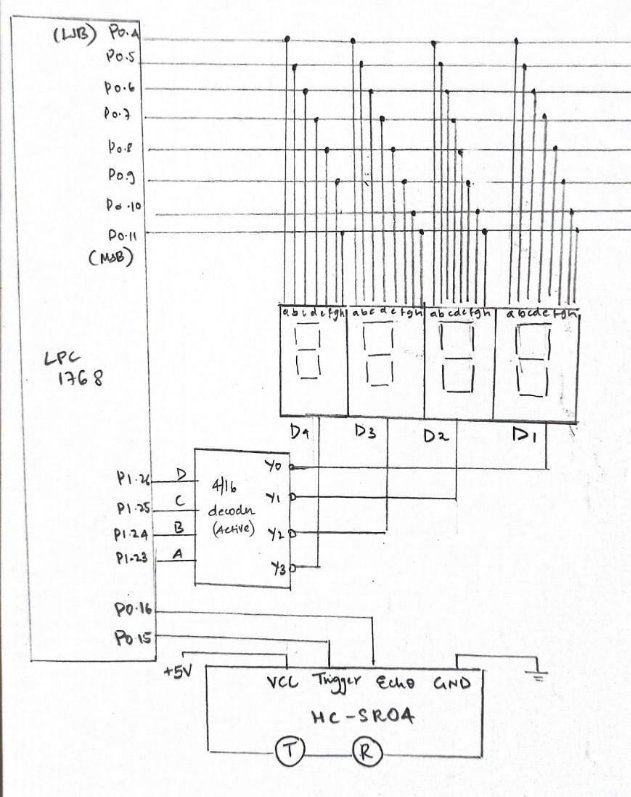 (LSB) P0.4
P0.5
P0.6
P0.7
P0.8
P0.9
P0.10
P0.11
(MSB)
LPC
1768
a b c d e f g h a b c d e f g h a b c d e f g h a b c d e f g h
D4 D3 D2 D1
P1.26 D
P1.25 C
P1.24 B
P1.23 A
4/16
decoder
(Active)
Y0
Y1
Y2
Y3
P0.16
P0.15
+5V
VCC Trigger Echo GND
HC-SR04
T R